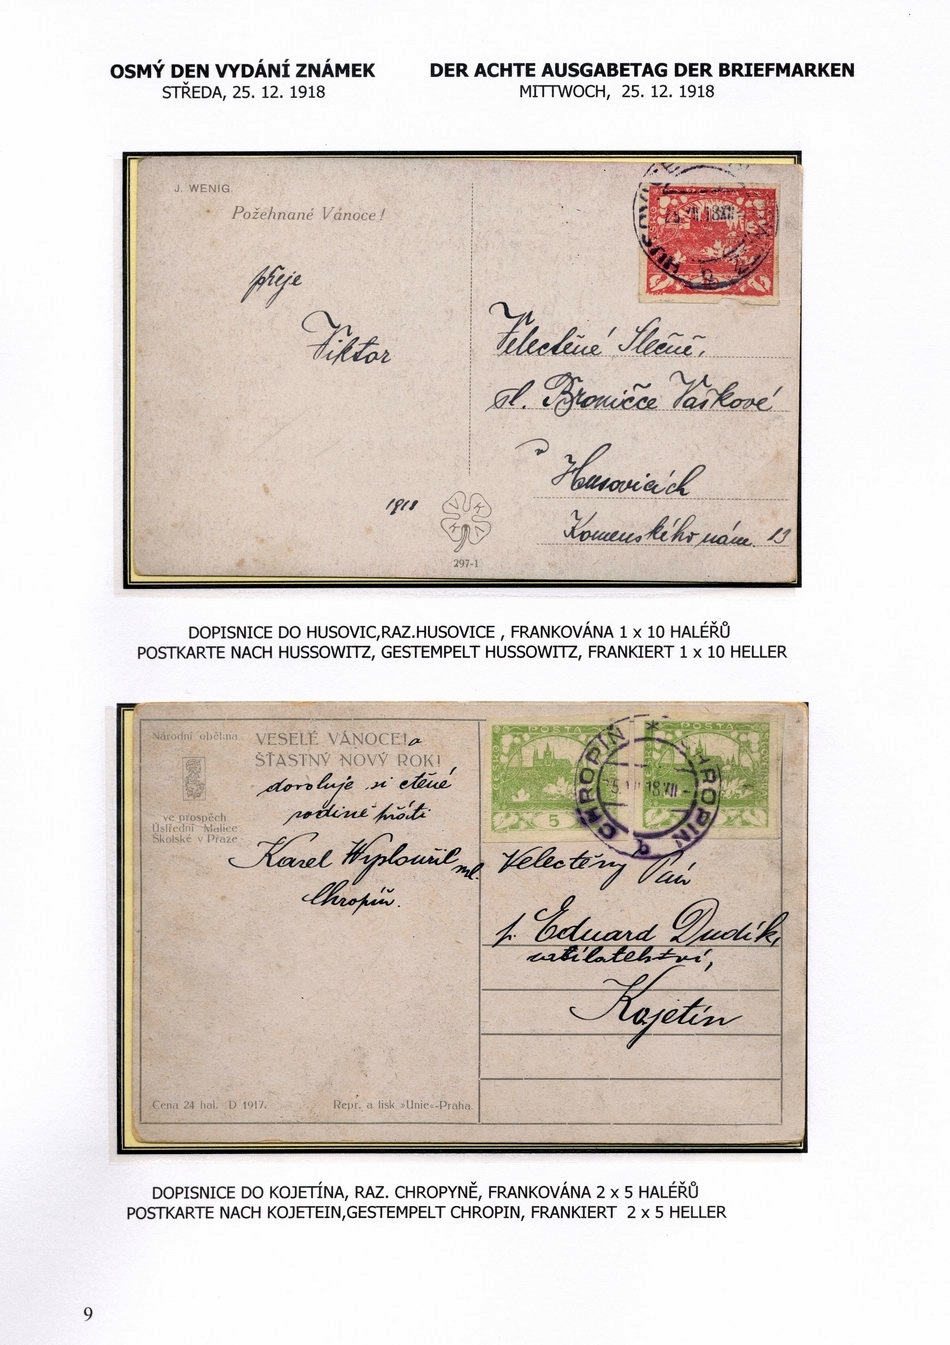 OSMÝ DEN VYDÁNÍ ZNÁMEK
STŘEDA, 25. 12. 1918
DER ACHTE AUSGABETAG DER BRIEFMARKEN
MITTWOCH, 25. 12. 1918
J. WENIG.
Požehnané Vánoce!
přeje
Viktor
1918
V K K V
297-1
HUSOVICE
25.XII.18.XII
Velectěné Slečně,
sl. Broničce Vaškové
v
Husovicích
Komenského nám. 13
DOPISNICE DO HUSOVIC,RAZ.HUSOVICE , FRANKOVÁNA 1 x 10 HALÉŘŮ
POSTKARTE NACH HUSSOWITZ, GESTEMPELT HUSSOWITZ, FRANKIERT 1 x 10 HELLER
Národní obětina
ve prospěch
Ústřední Matice
Školské v Praze.
VESELÉ VÁNOCE! a
ŠŤASTNÝ NOVÝ ROK!
dovoluje si ctěné
rodině přáti
Karel Vyplouřil ml.
Chropín.
Cena 24 hal. D 1917.
Repr. a tisk »Unie«-Praha.
POSTA
POSTA
ČESKO
5
CHROPIN
CHROPIN
18.XII
Velectěný Pán
p. Eduard Dudík,
Kojetín
DOPISNICE DO KOJETÍNA, RAZ. CHROPYNĚ, FRANKOVÁNA 2 x 5 HALÉŘŮ
POSTKARTE NACH KOJETEIN,GESTEMPELT CHROPIN, FRANKIERT 2 x 5 HELLER
9